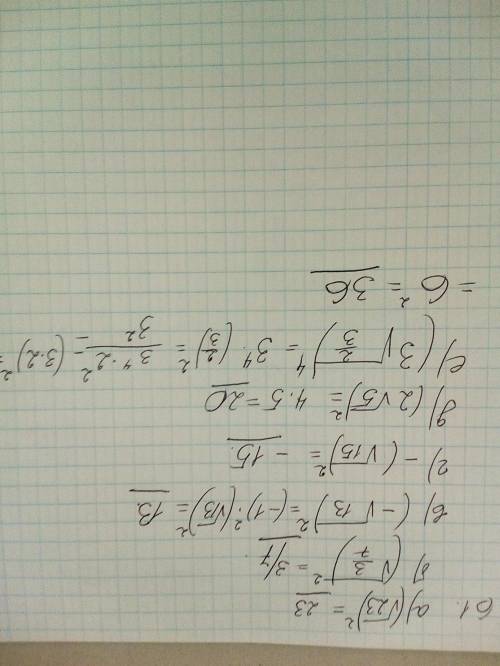 61. а) (√23)² = 23
б) (√3/7)² = 3/7.
в) (-√13)² = (-1)²·(√13)² = 13.
г) -(√15)² = -15.
д) (2√5)² = 4·5 = 20
е) (3√2/3)⁴ = 3⁴·(2/3)² = 3⁴·2²/3² = (3·2)² =
= 6² = 36